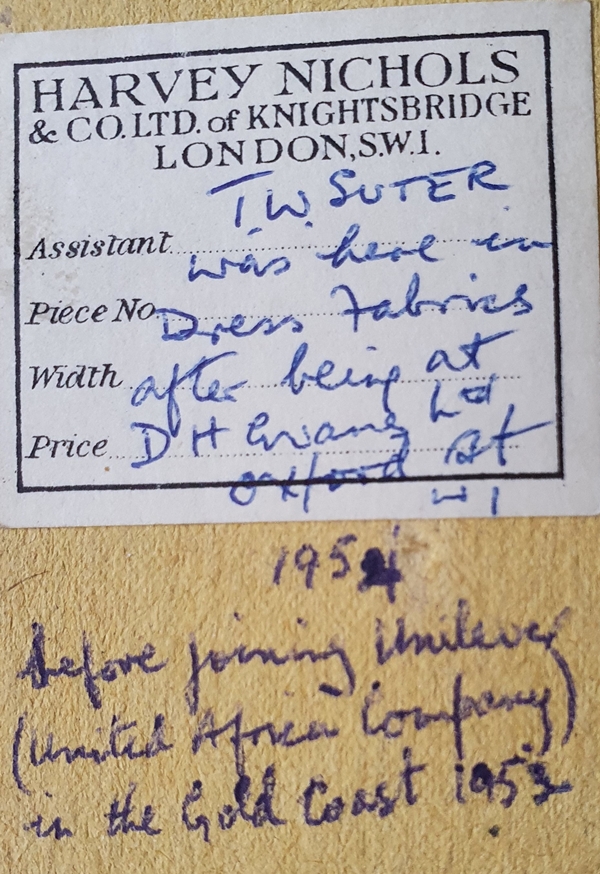 HARVEY NICHOLS
& CO. LTD. of KNIGHTSBRIDGE
LONDON, S.W.1.
T.W. SUTER
Assistant was here in
Piece No. Dress Fabrics
Width after being at
Price D H Evans Ltd,
Oxford St
W1
195
before joining Unilever
(United Africa Company)
in the Gold Coast